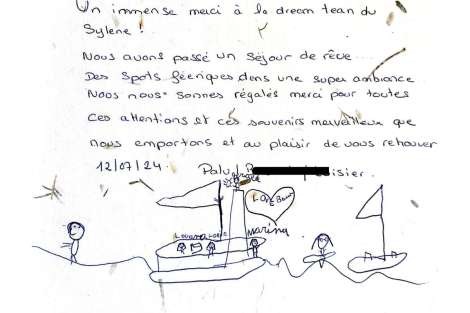 Un immense merci à la dream tean du
Sylene !
Nous avons passé un séjour de rêve
Des spots féeriques dans une super ambiance
Nous nous sommes régalés merci pour toutes
ces attentions et ces souvenirs merveilleux que
nous emportons et au plaisir de vous retrouver
12/07/24. Palud isier.
Love Boat
Marina